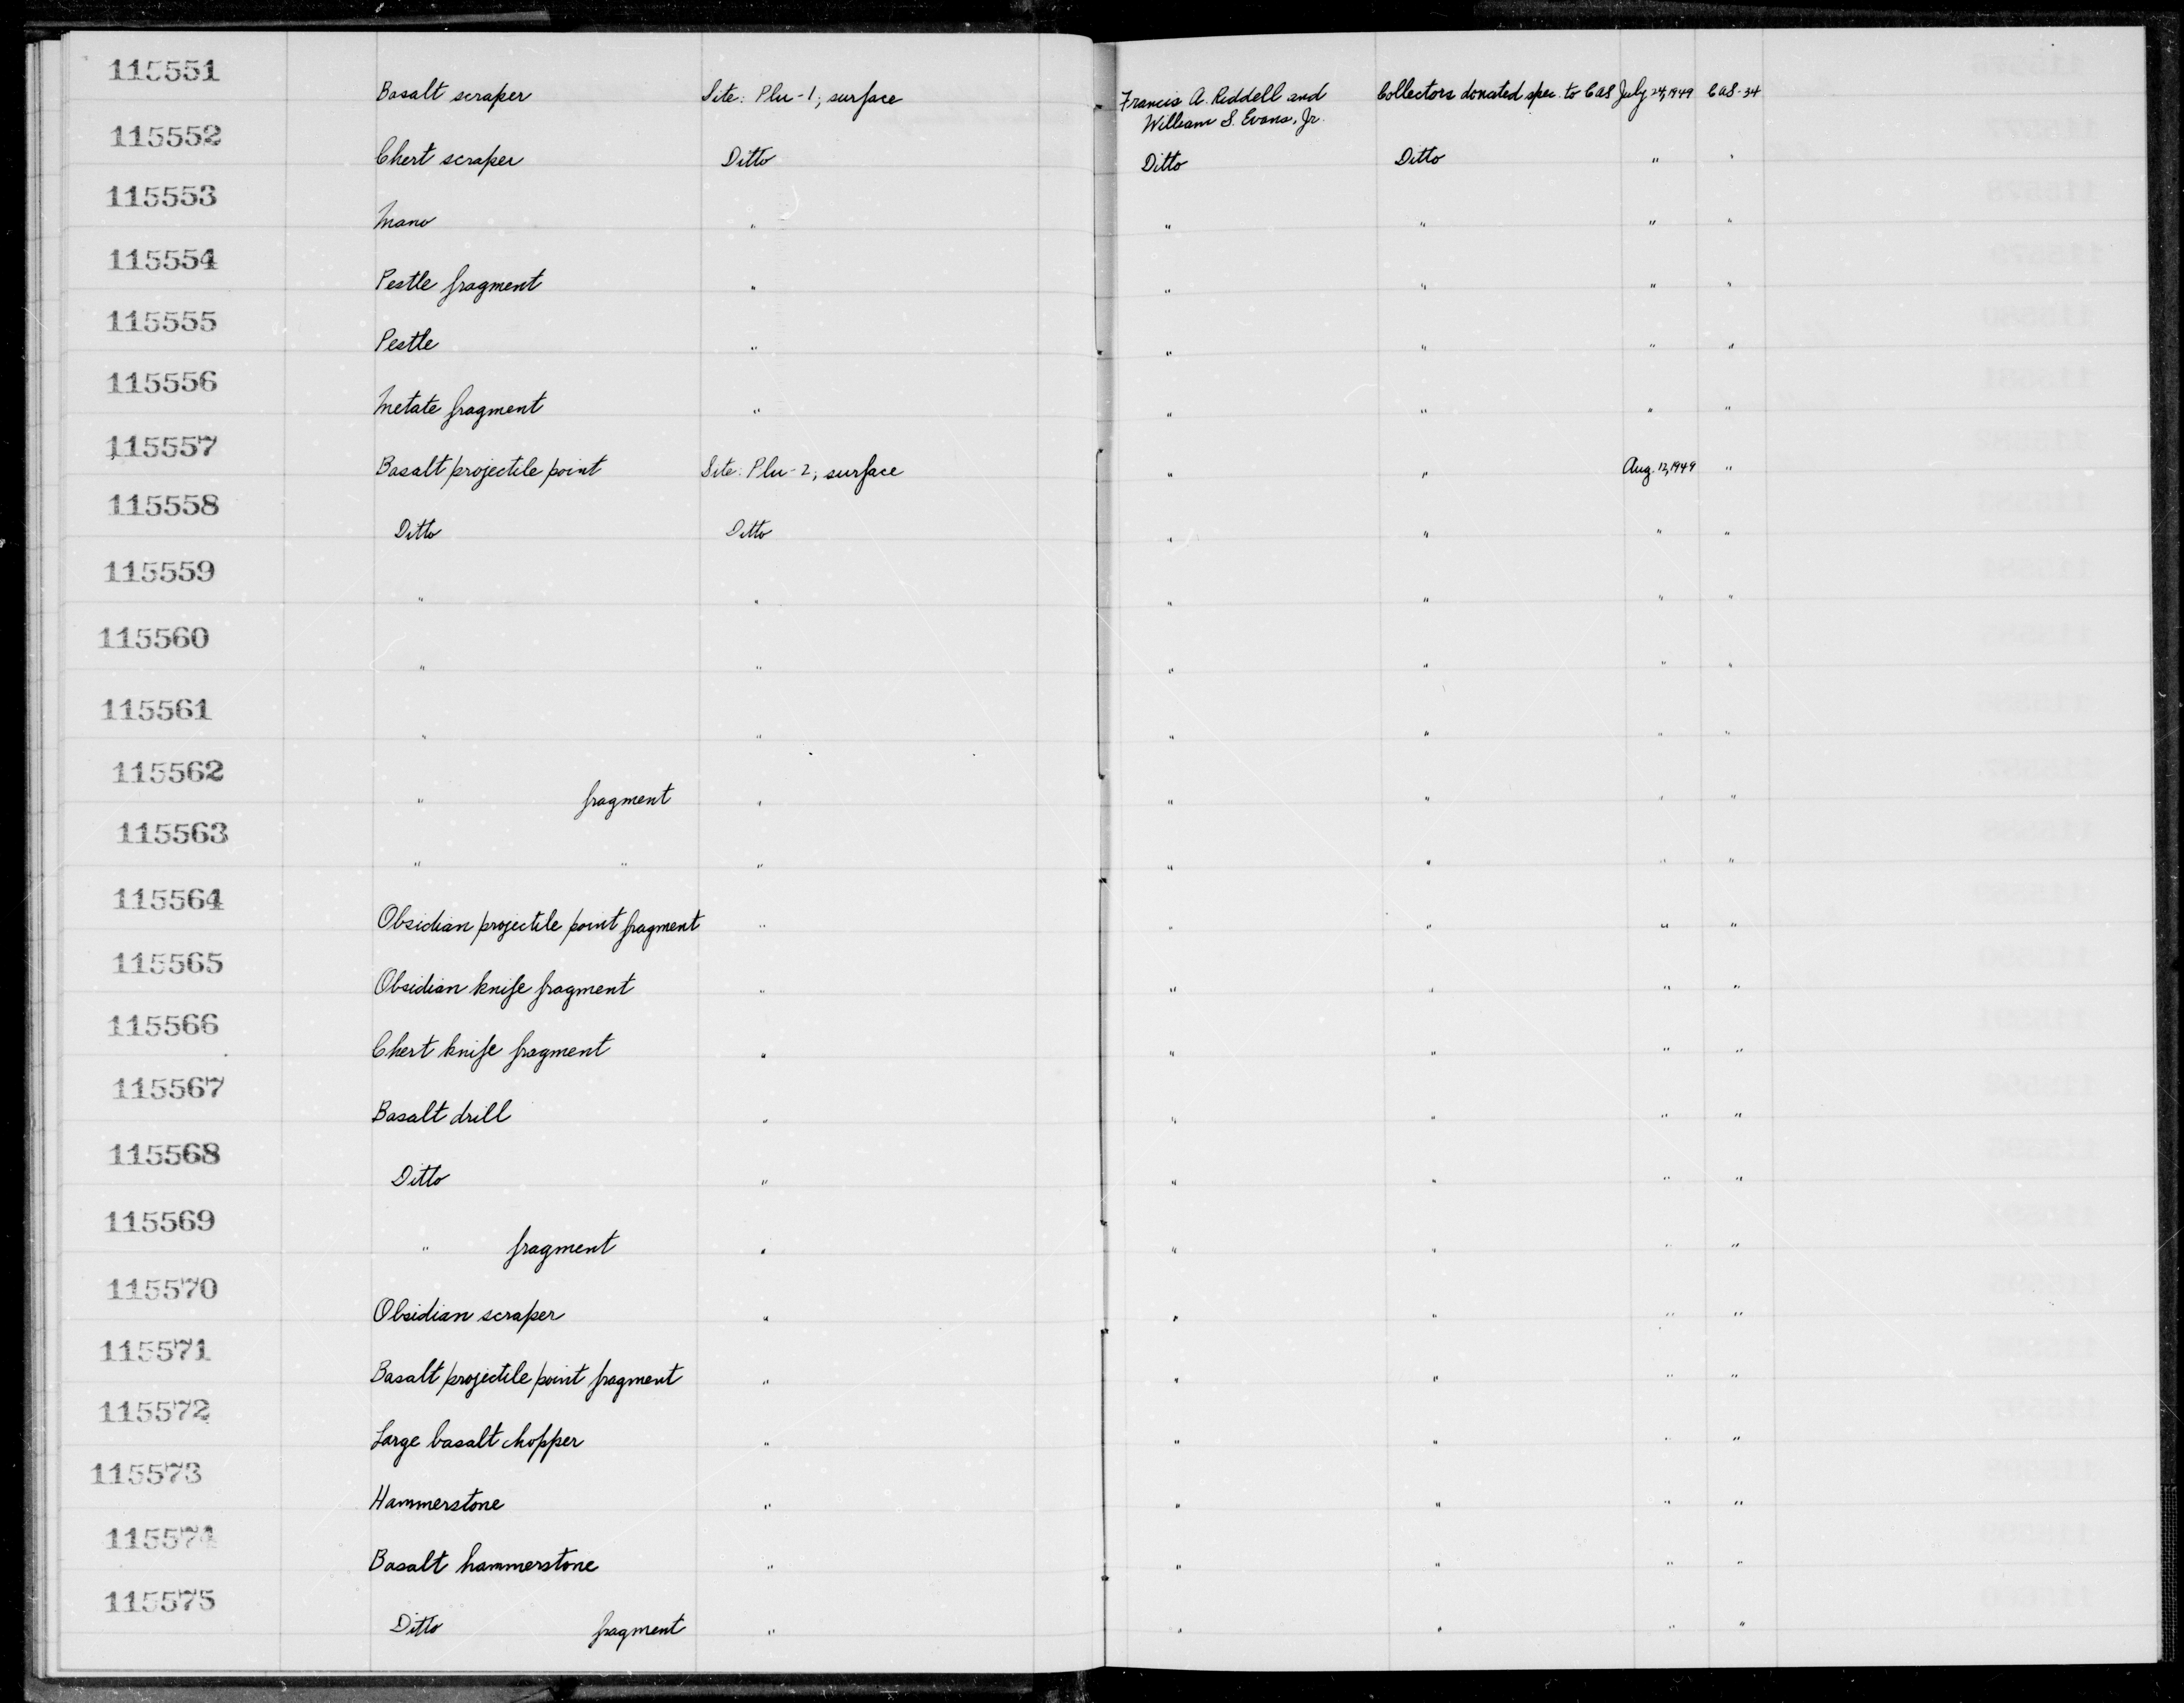 115551 Basalt scraper Site: Plu-1; surface Francis A. Riddell and William S. Evans, Jr. Collectors donated spec. to CAS July 24, 1949 CAS-34
115552 Chert scraper Ditto Ditto Ditto " "
115553 Mano " " " " "
115554 Pestle fragment " " " " "
115555 Pestle " " " " "
115556 Metate fragment " " " " "
115557 Basalt projectile point Site: Plu-2; surface " " Aug. 12, 1949 "
115558 Ditto Ditto " " " "
115559 " " " " " "
115560 " " " " " "
115561 " " " " " "
115562 " fragment " " " " "
115563 " " " " " " "
115564 Obsidian projectile point fragment " " " " "
115565 Obsidian knife fragment " " " " "
115566 Chert knife fragment " " " " "
115567 Basalt drill " " " " "
115568 Ditto " " " " "
115569 " fragment " " " " "
115570 Obsidian scraper " " " " "
115571 Basalt projectile point fragment " " " " "
115572 Large basalt chopper " " " " "
115573 Hammerstone " " " " "
115574 Basalt hammerstone " " " " "
115575 Ditto fragment " " " " "